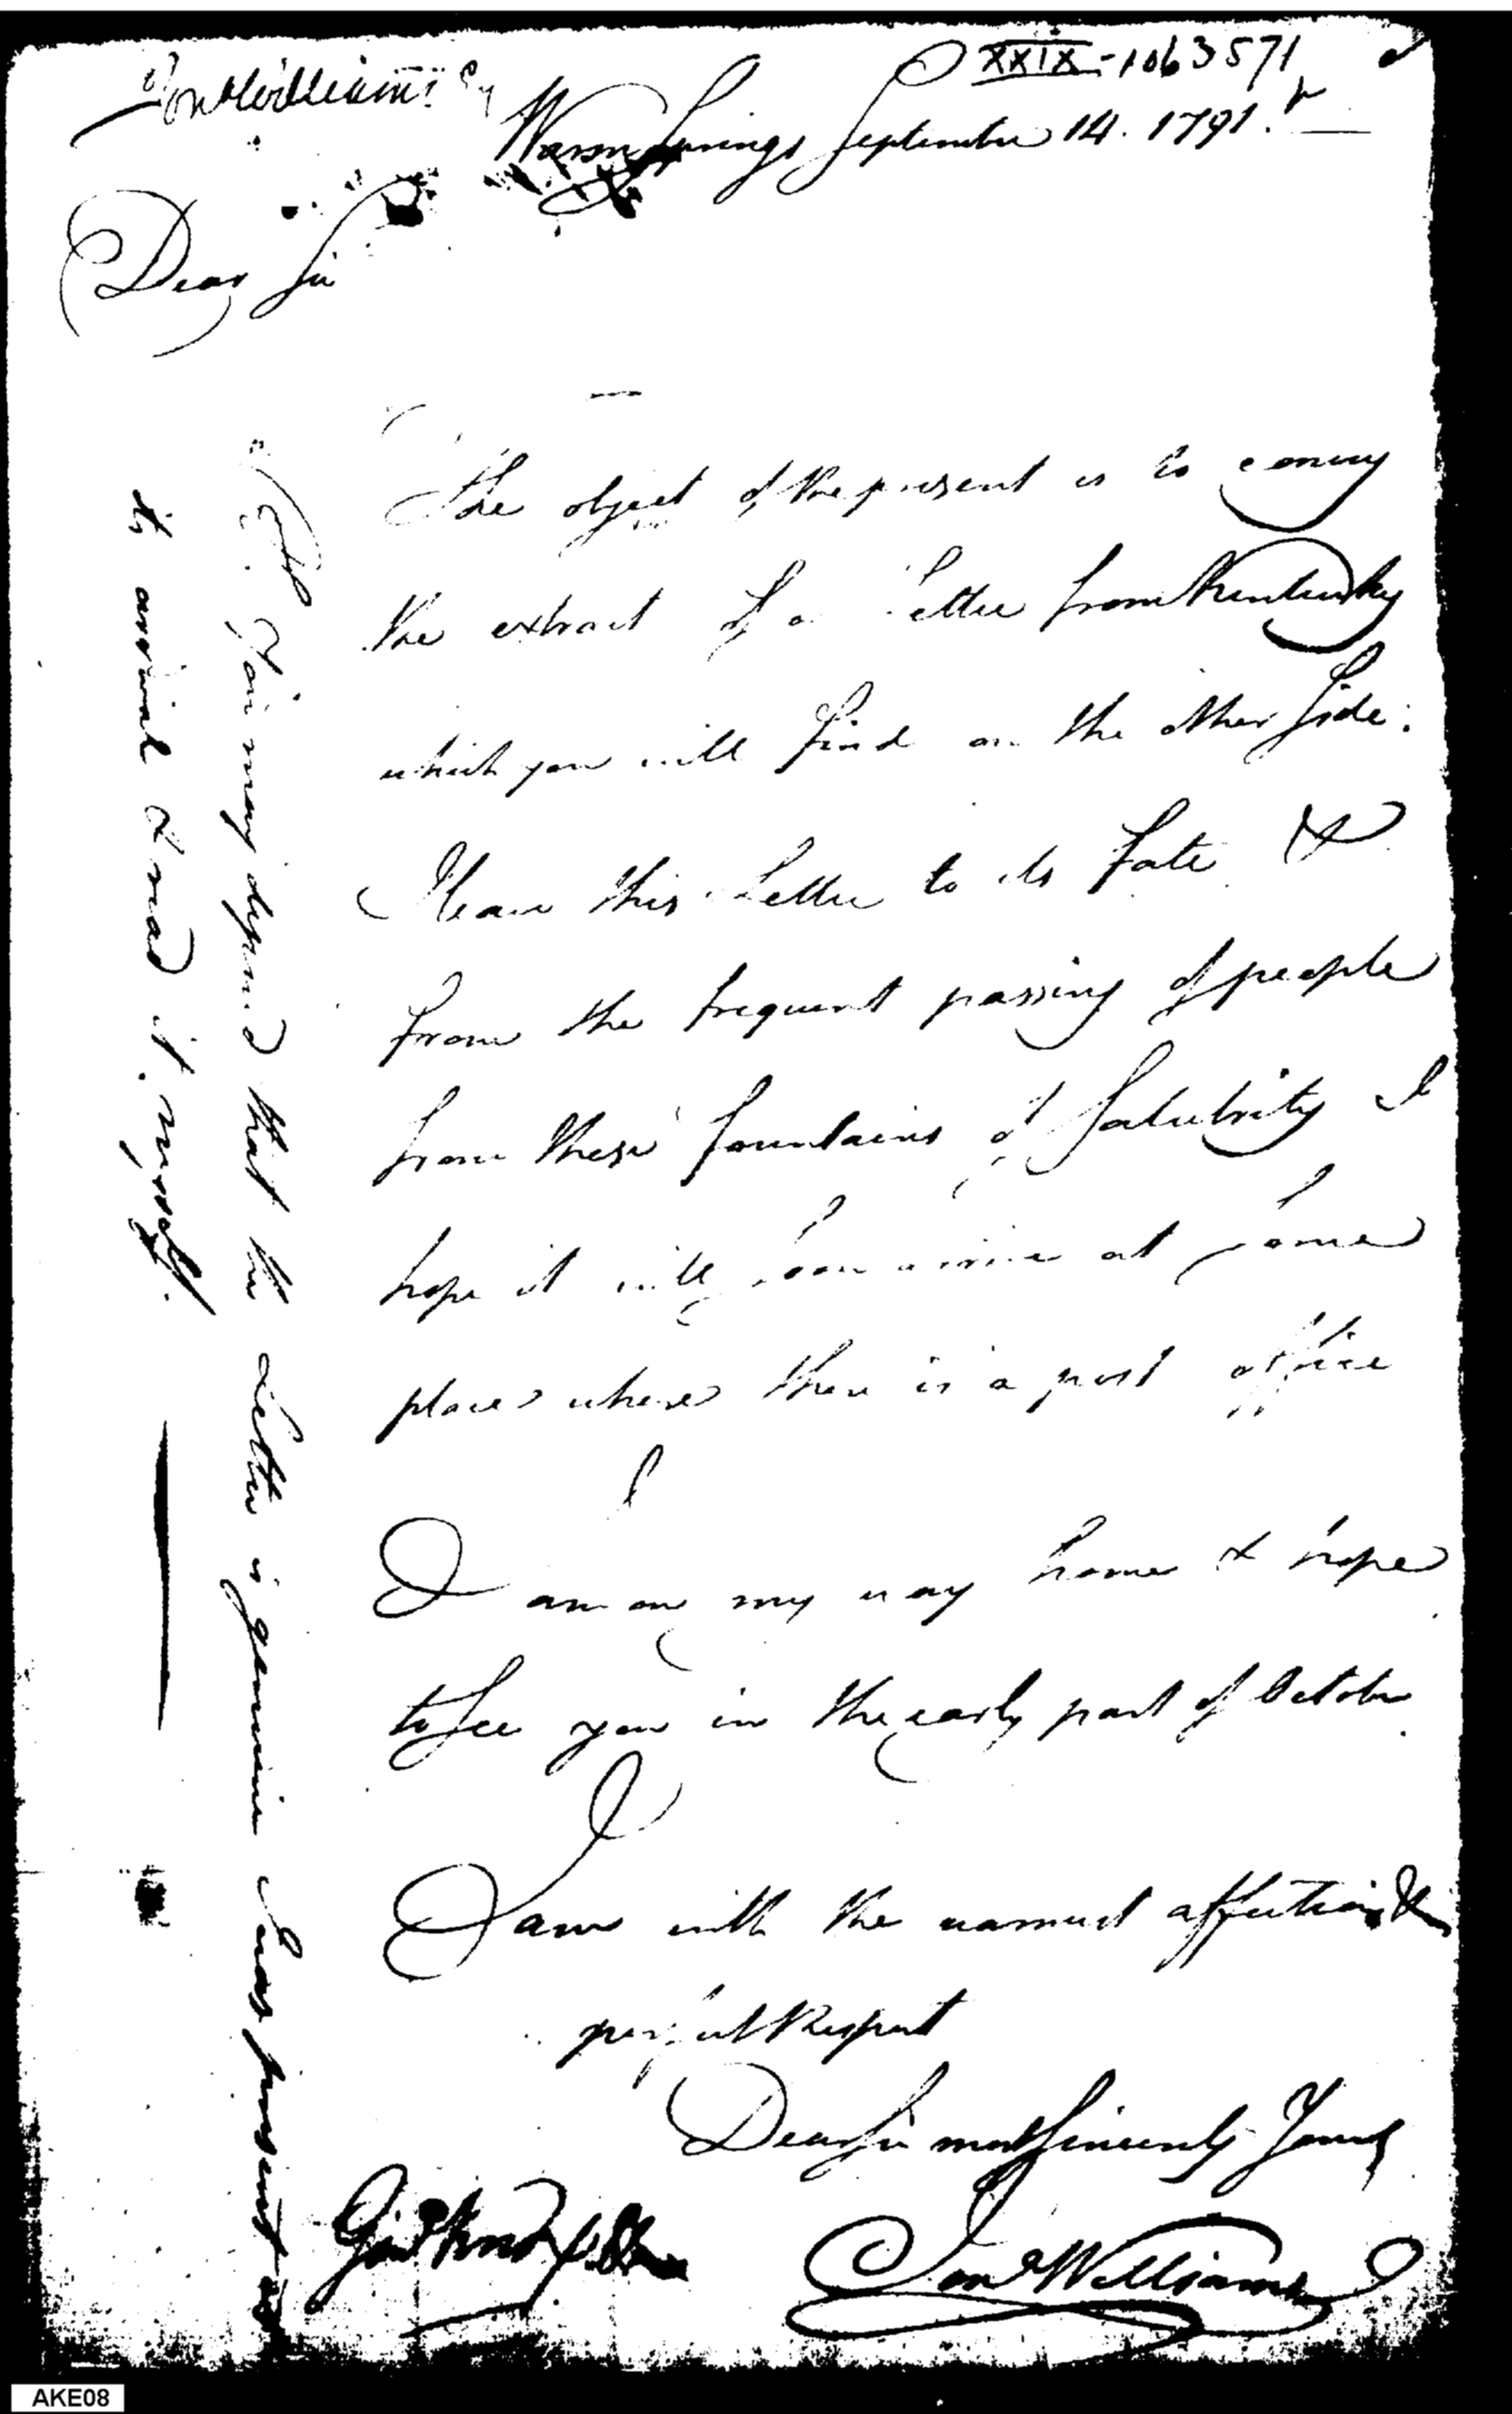 Jon Williams Esq
XXIX-1063571
Warm Springs September 14. 1791.
Dear Sir
The object of the present is to convey
the extract of a Letter from Kentucky
which you will find on the other Side.
I leave this Letter to its fate &
from the frequent passing of people
from these fountains of Salubrity I
hope it will soon arrive at some
place where there is a post office
I am on my way home & hope
to See you in the early part of October
I am with the warmest affection &
perfect Respect
Dear Sir most Sincerely Yours
Jon Williams
Genl Knox
You may depend that the Letter is genuine I was present at
its arrival & read it myself.
AKE08